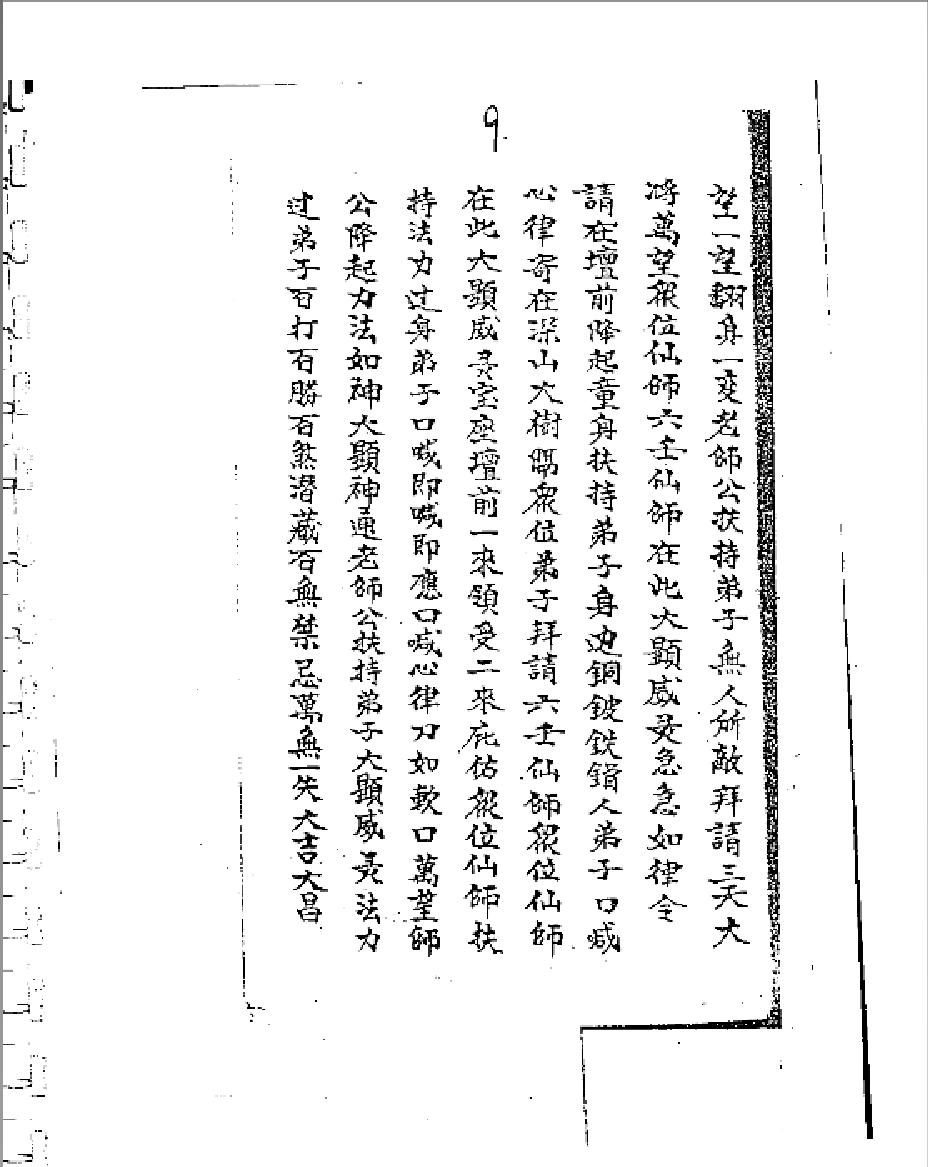 9
望一望翻身一变老師公扶持弟子無人所敵拜請三天大
將萬望眾位仙師六壬仙師在此大顯威灵急急如律令
請在壇前降起童身扶持弟子身边銅鈹鉄鎖人弟子口喊
心律寄在深山大樹 眾位弟子拜請六壬仙師眾位仙師
在此大顯威灵宝座壇前一來領受二來庇佑眾位仙師扶
持法力过身弟子口喊即喊即應口喊心律刀如軟口萬望師
公降起力法如神大顯神通老師公扶持弟子大顯威灵法力
过弟子百打百勝百煞潛藏百無禁忌萬無一失大吉大昌